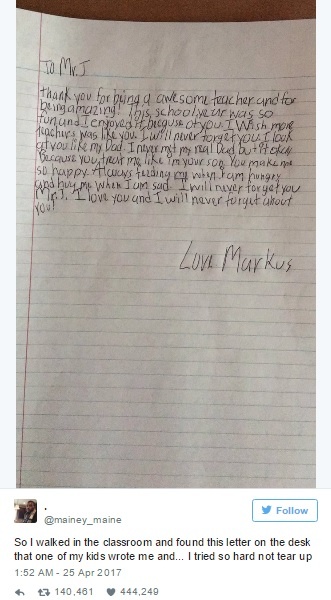 To Mr. J
thank you for being a awesome teacher and for
being amazing! This school year was so
fun and I enjoyed it becguse of you. I Wish more
teachers was like you. I will never forget you. I look
at you like my Dad. I never met my real Dad but it okay
Because you treat me like i'm your son. You make me
so happy. Always feeding me when I am hungry
and hug me when I am sad. I will never forget you
Mr. J. I love you and I will never forget about
you!
Love Markus
.
@mainey_maine
Follow
So I walked in the classroom and found this letter on the desk
that one of my kids wrote me and... I tried so hard not tear up
1:52 AM - 25 Apr 2017
140,461 444,249